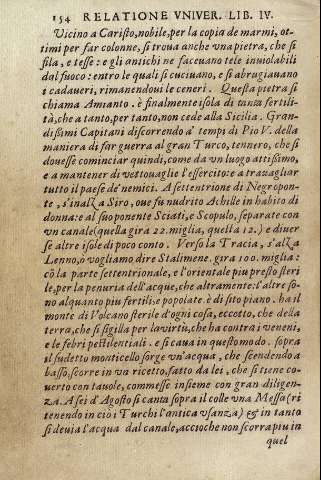 154 RELATIONE VNIVER. LIB. IV.
Vicino a Caristo, nobile, per la copia de marmi, ot-
timi per far colonne, si troua anche vna pietra, che si
fila, e tesse: e gli antichi ne faceuano tele inuiolabili
dal fuoco: entro le quali si cuciuano, e si abrugiauano
i cadaueri, rimanendoui le ceneri. Questa pietra si
chiama Amianto. è finalmente isola di tanta fertili-
tà, che a tanto, per tanto, non cede alla Sicilia. Gran-
dissimi Capitani discorrendo a' tempi di Pio V. della
maniera di far guerra al gran Turco, tennero, che si
douesse cominciar quindi, come da vn luogo attissimo,
e a mantener di vettouaglie l'essercito: e a trauagliar
tutto il paese de' nemici. A settentrione di Negropon-
te, s'inalza Siro, oue fù nudrito Achille in habito di
donna: e al suo ponente Sciati, e Scopulo, separate con
vn canale (quella gira 22. miglia, quella 12.) e diuer
se altre isole di poco conto. Verso la Tracia, s'alza
Lenno, ò vogliamo dire Stalimene. gira 100. miglia:
cō la parte settentrionale, e l'orientale più presto steri
le, per la penuria dell'acque, che altramente: l'altre so-
no alquanto piu fertili, e popolate. è di sito piano. ha il
monte di Volcano sterile d'ogni cosa, eccetto, che della
terra, che si sigilla per la virtù, che ha contra i veneni,
e le febri pestilentiali. e si caua in questo modo. sopra
il sudetto monticello sorge vn'acqua, che scendendo a
basso, scorre in vn ricetto, fatto da lei, che si tiene co-
uerto con tauole, commesse insieme con gran diligen-
za. A sei d'Agosto si canta sopra il colle vna Messa (ri
tenendo in ciò i Turchi l'antica vsanza) & in tanto
si deuia l'acqua dal canale, accioche non scorra piu in
quel